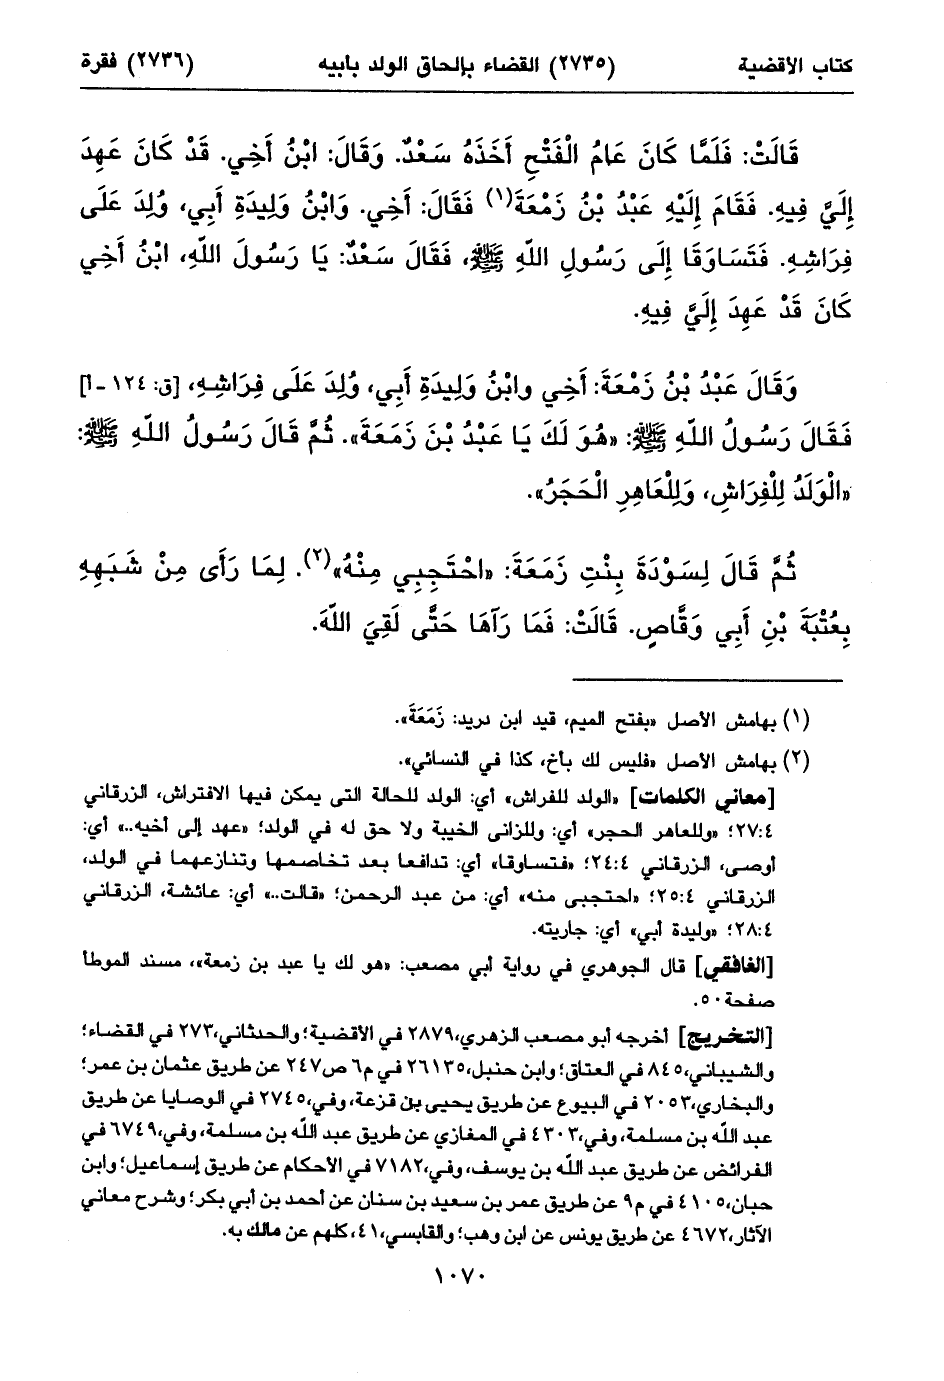 كتاب الأقضية (٢٧٣٥) القضاء بإلحاق الولد بابيه (٢٧٣٦) فقرة
قَالَتْ: فَلَمَّا كَانَ عَامُ الْفَتْحِ أَخَذَهُ سَعْدٌ. وَقَالَ: ابْنُ أَخِي. قَدْ كَانَ عَهِدَ
إِلَيَّ فِيهِ. فَقَامَ إِلَيْهِ عَبْدُ بْنُ زَمْعَةَ(١) فَقَالَ: أَخِي. وَابْنُ وَلِيدَةِ أَبِي، وُلِدَ عَلَى
فِرَاشِهِ. فَتَسَاوَقَا إِلَى رَسُولِ اللّهِ ﷺ، فَقَالَ سَعْدٌ: يَا رَسُولَ اللّهِ، ابْنُ أَخِي
كَانَ قَدْ عَهِدَ إِلَيَّ فِيهِ.
وَقَالَ عَبْدُ بْنُ زَمْعَةَ: أَخِي وابْنُ وَلِيدَةِ أَبِي، وُلِدَ عَلَى فِرَاشِهِ، [ق: ١٢٤ -أ]
فَقَالَ رَسُولُ اللّهِ ﷺ: «هُوَ لَكَ يَا عَبْدُ بْنَ زَمَعَةَ». ثُمَّ قَالَ رَسُولُ اللّهِ ﷺ:
«الْوَلَدُ لِلْفِرَاشِ، وَلِلْعَاهِرِ الْحَجَرُ».
ثُمَّ قَالَ لِسَوْدَةَ بِنْتِ زَمَعَةَ: «احْتَجِبِي مِنْهُ»(٢). لِمَا رَأَى مِنْ شَبَهِهِ
بِعُتْبَةَ بْنِ أَبِي وَقَّاصٍ. قَالَتْ: فَمَا رَآهَا حَتَّى لَقِيَ اللّهَ.
(١) بهامش الأصل «بفتح الميم، قيد ابن دريد: زَمَعَةَ».
(٢) بهامش الأصل «فليس لك بأخ، كذا في النسائي».
[معاني الكلمات] «الولد للفراش» أي: الولد للحالة التى يمكن فيها الافتراش، الزرقاني
٢٧:٤؛ «وللعاهر الحجر» أي: وللزانى الخيبة ولا حق له في الولد؛ «عهد إلى أخيه..» أي:
أوصى، الزرقاني ٢٤:٤؛ «فتساوقا» أي: تدافعا بعد تخاصمها وتنازعهما في الولد،
الزرقاني ٢٥:٤؛ «احتجبى منه» أي: من عبد الرحمن؛ «قالت..» أي: عائشة، الزرقاني
٢٨:٤؛ «وليدة أبي» أي: جاريته.
[الغافقي] قال الجوهري في رواية أبي مصعب: «هو لك يا عبد بن زمعة»، مسند الموطأ
صفحة٥٠.
[التخريج] أخرجه أبو مصعب الزهري،٢٨٧٩ في الأقضية؛ والحدثاني،٢٧٣ في القضاء؛
والشيباني،٨٤٥ في العتاق؛ وابن حنبل،٢٦١٣٥ في م٦ ص٢٤٧ عن طريق عثمان بن عمر؛
والبخاري،٢٠٥٣ في البيوع عن طريق يحيى بن قزعة، وفي،٢٧٤٥ في الوصايا عن طريق
عبد اللّه بن مسلمة، وفي،٤٣٠٣ في المغازي عن طريق عبد اللّه بن مسلمة، وفي،٦٧٤٩ في
الفرائض عن طريق عبد اللّه بن يوسف، وفي،٧١٨٢ في الأحكام عن طريق إسماعيل؛ وابن
حبان،٤١٠٥ في م٩ عن طريق عمر بن سعيد بن سنان عن أحمد بن أبي بكر؛ وشرح معاني
الآثار،٤٦٧٢ عن طريق يونس عن ابن وهب؛ والقابسي،٤١، كلهم عن مالك به.
١٠٧٠